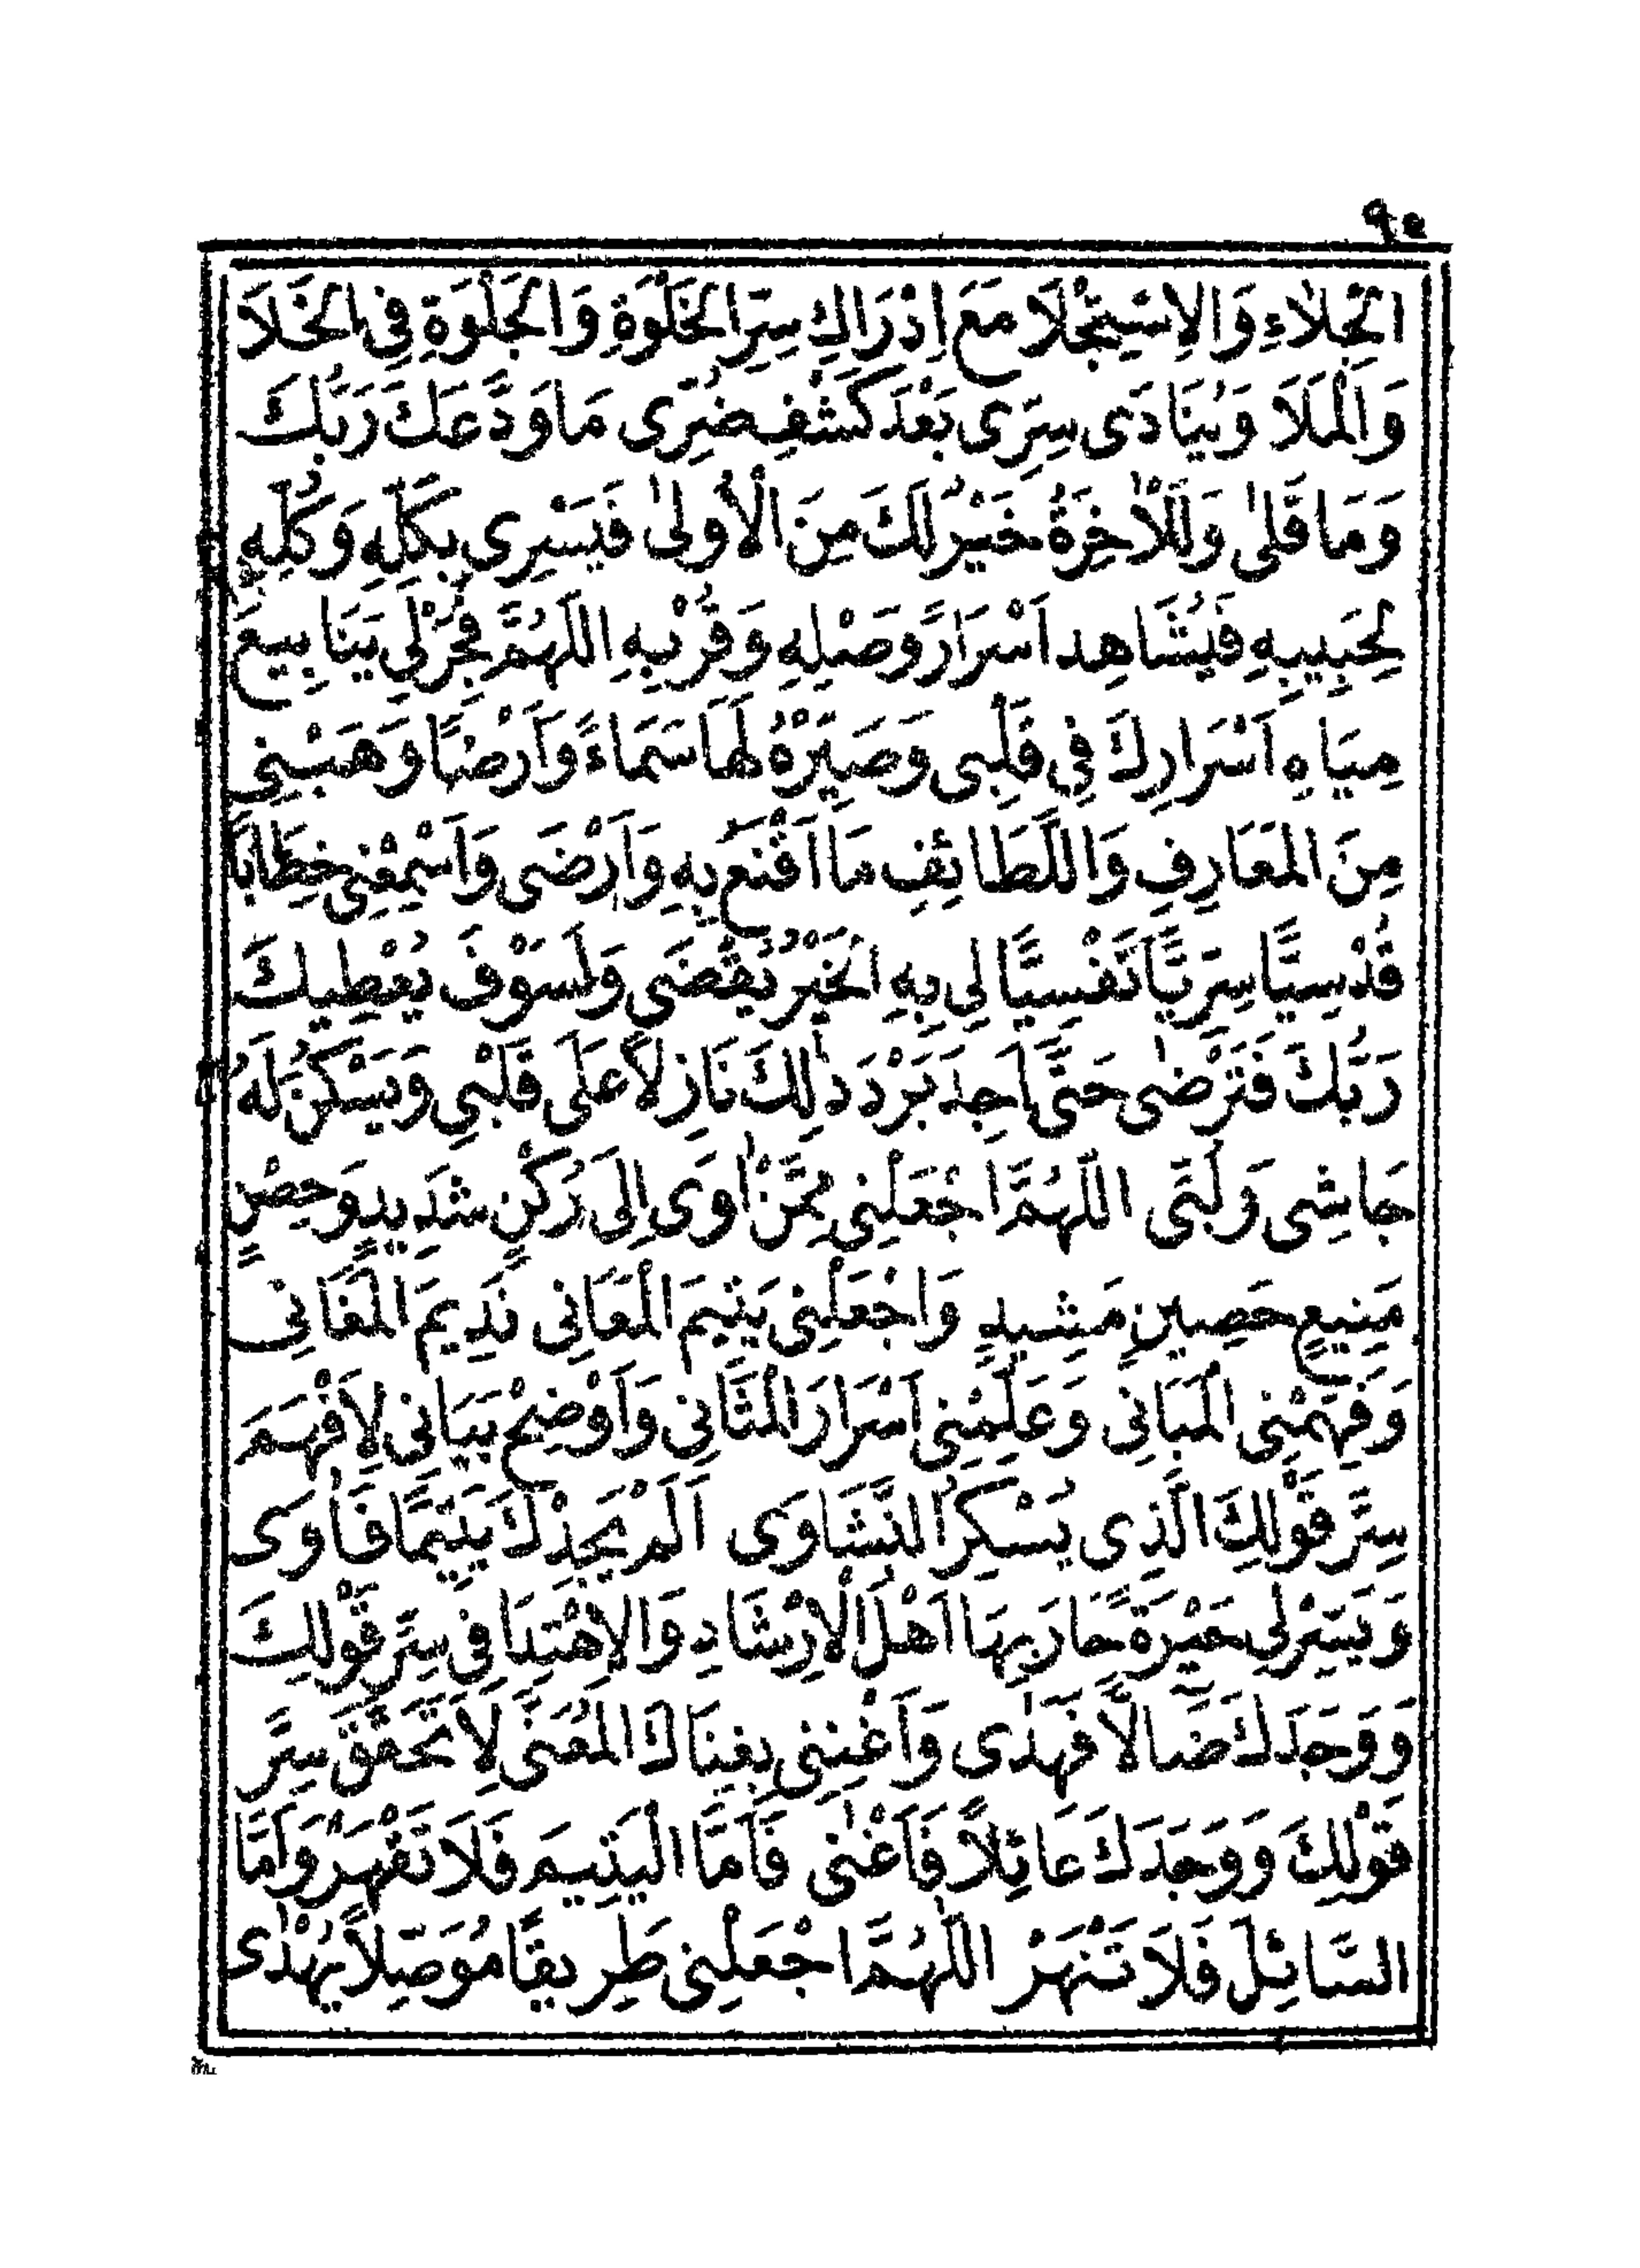 ٩٥
الْجَلَاءِ وَالِاسْتِجْلَا مَعَ اِدْرَاكِ سِرِّ الْخَلْوَةِ وَالْجَلْوَةِ فِي الْخَلَا
وَالْمَلَا وَيُنَادَى سِرِّى بَعْدَ كَشْفِ ضُرِّى مَا وَدَّعَكَ رَبُّكَ
وَمَا قَلٰى وَلَلْاٰخِرَةُ خَيْرٌ لَكَ مِنَ الْاُولٰى فَيَسْرِى بِكُلِّهِ وَكُلِّهِ
لِحَبِيبِهِ فَيُشَاهِد اَسْرَارً وَصْلِهِ وَقُرْبِهِ اَللّٰهُمَّ فَجِّرْ لِي يَنَابِيعَ
مِيَاهِ اَسْرَارِكَ فِي قَلْبِى وَصَيِّرْهُ لَهَا سَمَاءً وَاَرْضًا وَهَبْنِى
مِنَ الْمَعَارِفِ وَاللَّطَائِفِ مَا اَقْنَعُ بِهِ وَاَرْضَى وَاَسْمِعْنِى خِطَابًا
قُدْسِيًّا سِرِّيًّا نَفْسِيًّا لِي بِهِ الْخَيْرُ يُقْضَى وَلَسَوْفَ يُعْطِيكَ
رَبُّكَ فَتَرْضٰى حَتَّى اَجِدَ بَرْدَ ذٰلِكَ نَازِلًا عَلَى قَلْبِي وَيَسْكُنُ لَهُ
جَاشِى وَلُبِّى اَللّٰهُمَّ اجْعَلْنِى مِمَّنْ اٰوَى اِلَى رُكْنٍ شَدِيدٍ وَحِصْنٍ
مَنِيعٍ حَصِينٍ مَشِيدٍ وَاجْعَلْنِى يَتِيمَ الْمَعَانِى نَدِيمَ الْمَغَانِى
وَفَهِّمْنِى الْمَبَانِي وَعَلِّمْنِى اَسْرَارَ الْمَثَانِي وَاَوْضِحْ بَيَانِى لِاَفْهَمَ
سِرَّ قَوْلِكَ الَّذِى يُسْكِرُ النَّشَاوَى اَلَمْ يَجِدْكَ يَتِيمًا فَاٰوَى
وَيَسِّرْ لِى حَيْرَةً حَارَ بِهَا اَهْلُ الْاِرْشَادِ وَالِاهْتِدَا فِى سِرِّ قَوْلِكَ
وَوَجَدَكَ ضَآلًّا فَهَدٰى وَاَغْنِنِى بِغِنَاكَ الْمُغْنَى لِاَتَحَقَّقَ سِرَّ
قَوْلِكَ وَوَجَدَكَ عَائِلًا فَاَغْنٰى فَاَمَّا الْيَتِيمَ فَلَا تَقْهَرْ وَاَمَّا
السَّائِلَ فَلَا تَنْهَرْ اَللّٰهُمَّ اجْعَلْنِى طَرِيقًا مُوَصِّلًا يُهْدٰى